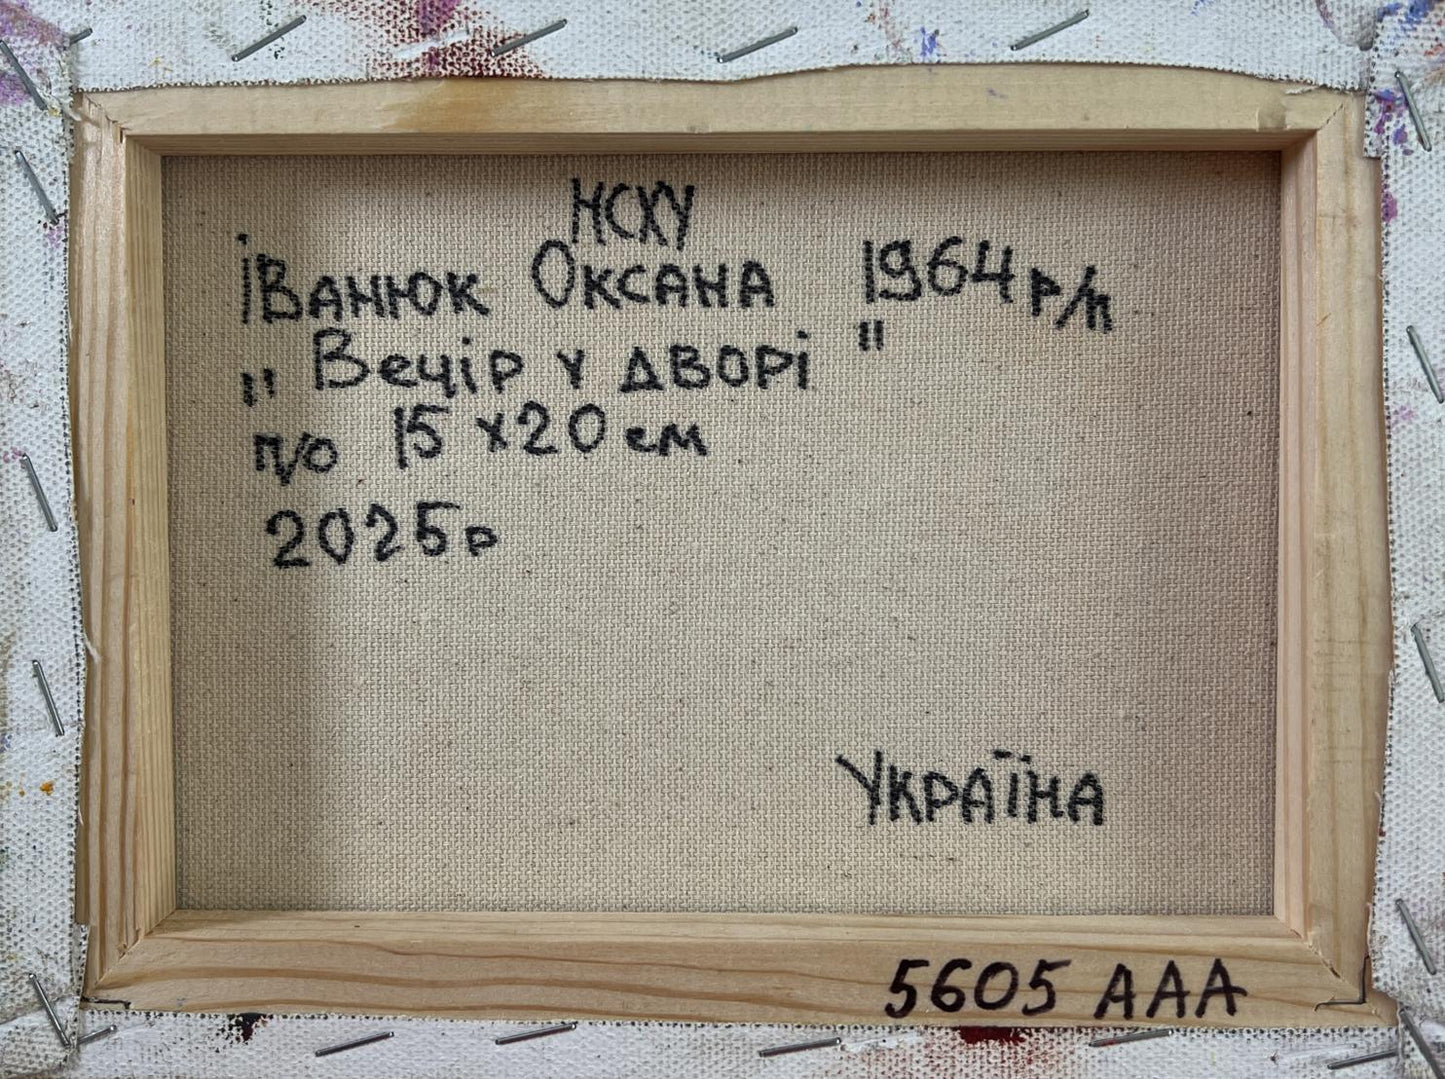 НСХУ
Іванюк Оксана 1964 р/н
„Вечір у дворі"
п/о 15х20 см
2025р
Україна
5605 ААА